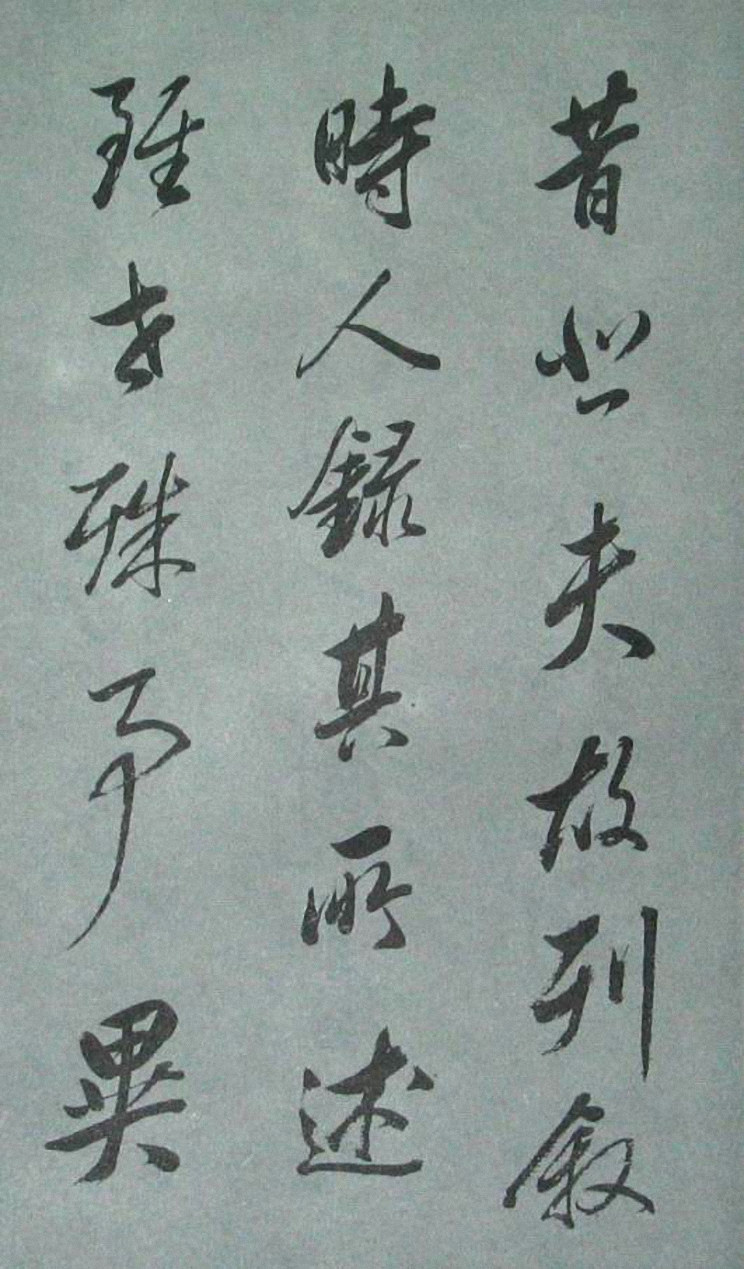 昔悲夫故列叙
時人録其所述
雖世殊事異